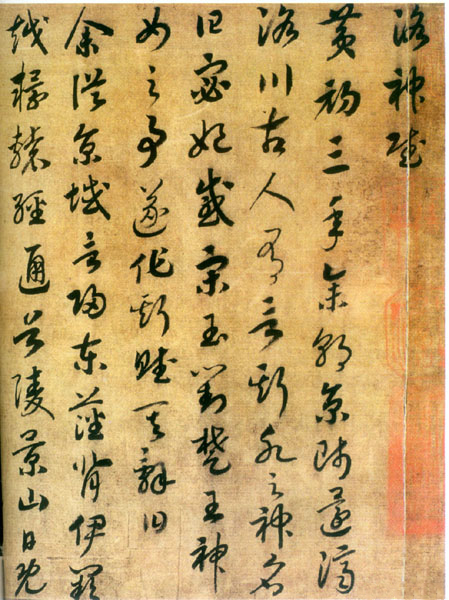 洛神賦
黄初三年余朝京師還濟
洛川古人有言斯水之神名
曰宓妃感宋玉對楚王神
女之事遂作斯賦其辭曰
余從京域言歸東藩背伊闕
越轘轅經通谷陵景山日既